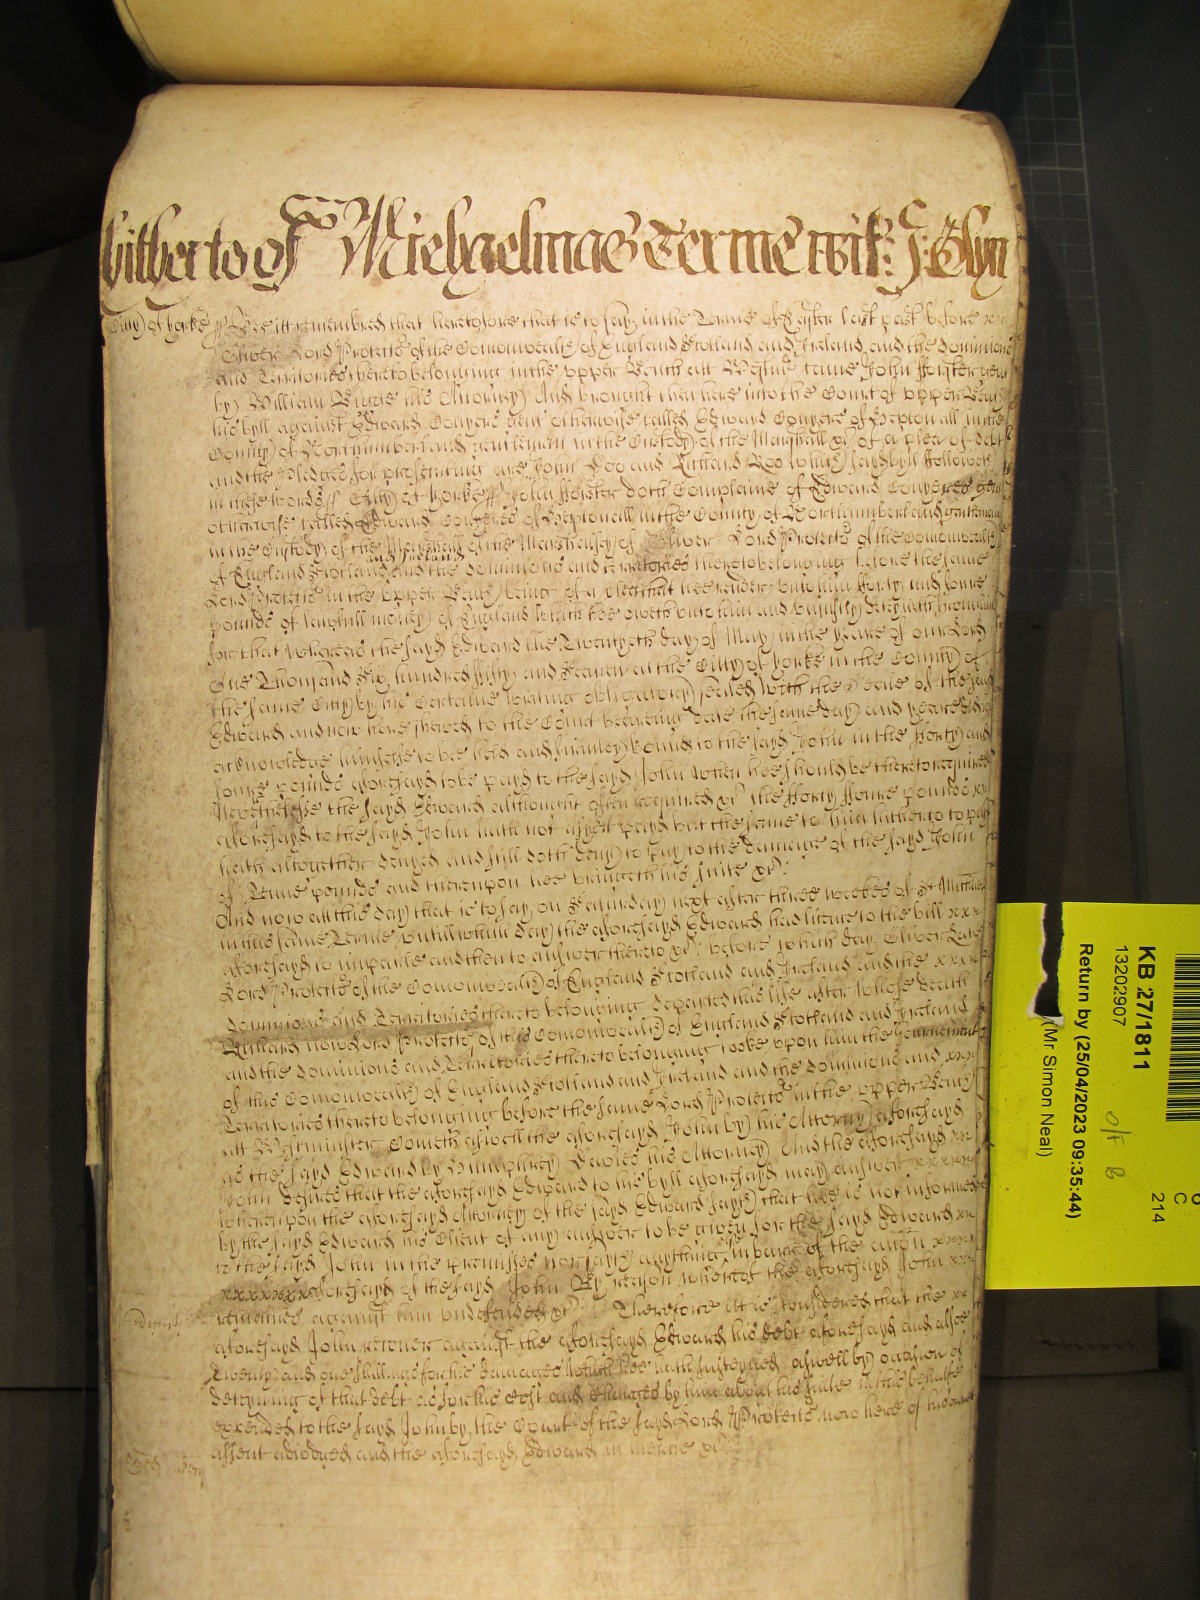 hitherto of Michaelmas Terme wit: J: Glyn
Citty of Yorke ss Bee itt remembred that heretofore that is to say in the Terme of Easter last past before xx
Oliver Lord Protector of the Comonwealth of England Scotland and Ireland and the dominions
and Territories thereto belonging in the upper Bench att Westmr came John Forster gent
by William his Attorney And brought then here into the Court of upper Bench
his byll against Edward Conyers gent otherwise called Edward Conyers of Heptonall in the
County of Northumberland gentleman in the Custody of the Marshall &c of a plea of debt
and the pledges for prosecuting are John Doo and Richard Roo which sayd byll followeth
in these words ss Citty of Yorke ss John Forster doth Complaine of Edward Conyeres gent
otherwise called Edward Conyeres of Heptonall in the County of Northumberland gentleman
in the Custody of the Marshall of the Marshalsey of Oliver Lord Protector of the Comonwealth
of England Scotland and Ireland and the dominions and territories thereto belonging before the same
Lord Protector in the upper Bench being of a plea that hee render unto him forty and foure
pounds of lawfull money of England which hee oweth unto him and uniustly deteyneth from him
for that whereas the sayd Edward the Twentyeth day of May in the yeare of our Lord
One Thousand Six hundred fifty and Seaven att the Citty of Yorke in the County of
the same Citty by his Certaine writing obligatory sealed with the Seale of the sayd
Edward and now here shewed to the Court beareing date the same day and yeare did
acknowledge himselfe to bee held and firmely bound to the sayd John in the Forty and
foure pounds aforesayd to be payd to the sayd John when hee should be thereto required
Neverthelesse the sayd Edward althought often required &c the Forty Foure pounds xx
aforesayd to the sayd John hath not as yett payd but the same to him hitherto to pay
hath altogether denyed and still doth deny to pay to the damage of the sayd John
of Tenne pounds and thereupon hee bringeth his suite &c:
And now att this day that is to say on Saturday next after three weekes of St Michael
in this same Terme untill which day the aforesayd Edward had licence to the bill xxx
aforesayd to imparle and then to answer thereto &c: before which day Oliver Late
Lord Protector of the Comonwealth of England Scotland and Ireland and the xxxx
dominions and Territories thereto belonging departed this life after whose death
Richard now Lord Protector of this Comonwealth of England Scotland and Ireland
and the dominions and Territories thereto belonging tooke upon him the Government
of this Comonwealth of England Scotland and Ireland and the dominions and xxx
Territories thereto belonging before the same Lord Protector in the upper Bench
att Westminster Cometh aswell the aforesayd John by his Attorney aforesayd
as the sayd Edward by Humphrey Davies his Attorney And the aforesayd xx
John desires that the aforesayd Edward to his byll aforesayd may answer xxxxx
whereupon the aforesayd Attorney of the sayd Edward sayth that hee is not informed
by the sayd Edward his Client of any answer to be given for the sayd Edward xx
to the sayd John in the premisses nor sayth anything in barre of the accon xxxx
xxxxxxx aforesayd of the sayd John By reason whereof the aforesayd John xxx
remaines against him undefended &c: Therefore itt is considered that the xx
aforesayd John recover against the aforesayd Edward his debt aforesayd and alsoe
Twenty and one shillings for his damages which hee hath susteyned aswell by occasion of
deteyning of that debt as for his cost and charges by him about his suite in this behalfe
expended to the sayd John by the Court of the sayd Lord Protector now here of his owne
assent adiudged and the aforesayd Edward in mercie &c:
KB 27/1811
13202907
Return by (25/04/2023 09:35:44)
(Mr Simon Neal)
C
214